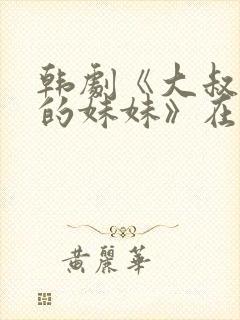 韩劇《大叔
的妹妹》在
黄麗華